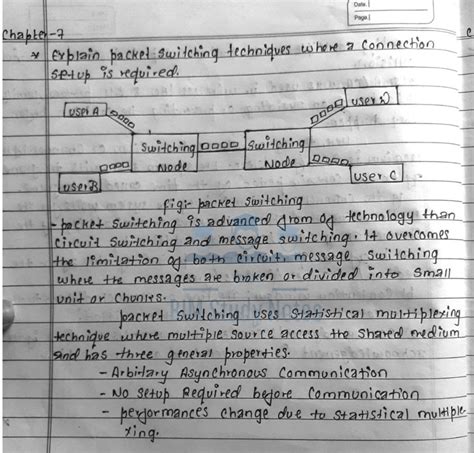 Date.
Page.
Chapter-7
* Explain packet switching techniques where a connection
setup is required.
user A
user D
Switching
Node
Switching
Node
user B
user C
fig:- packet switching
- packet switching is advanced from of technology than
circuit switching and message switching. It overcomes
the limitation of both circuit, message, switching
where the messages are broken or divided into small
unit or chunks.
packet switching uses statistical multiplexing
technique where multiple source access the shared medium
and has three general properties.
- Arbitary Asynchronous Communication
- No setup Required before Communication
- performances change due to statistical multiple
xing.